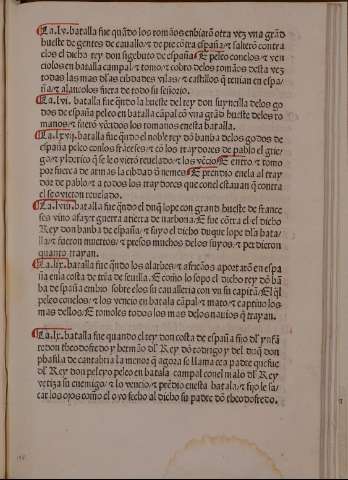 La.lv.batalla fue quãdo los romãos enbiarõ otra vez vna grãd
hueste de gentes de cauallo ⁊ de pie cõtra españa ⁊ salierõ contra
ellos el dicho rey don sigebuto de españa E peleo con ellos ⁊ ven
ciolos en batalla campal ⁊ tomo ⁊ cobro delos romãos desta vez
todas las mas dlas cibdades villas ⁊ castillos q̃ tenian en espa
ña ⁊ alançolos fuera de todo su señorio.
La.lvi. batalla fue q̃ndo la hueste del rey don suyntilla delos go
dos de españa peleo en batalla cãpal cõ vna grãd hueste delos ro
manos ⁊ fuerõ vẽçidos los romanos en esta batalla.
La.lvij.batalla fue q̃ndo el noble rey dõ banba delos godos de
españa peleo con los frãceses ⁊ cõ los traydores de pablo el grie
go ⁊ lotirco q̃ se le oviẽ reuelado ⁊ los vẽcio E entro ⁊ tomo
por fuerça de armas la cibdad d nemes E prendio en ella al tray
dor de pablo ⁊ a todos los traydores que con el estauan q̃ contra
el se ovieron reuelado.
La.lviii.batalla fue q̃ndo el duq̃ lope con grand hueste de france
ses vino a fazer guerra a tierra de narbona E fue cõtra el el dicho
Rey don banba de españa ⁊ fuyo el dicho duque lope dla bata/
lla ⁊ fueron muertos ⁊ presos muchos delos suyos ⁊ perdieron
quanto trayan.
La.lix.batalla fue q̃ndo los alarabes ⁊ africãos aportarõ en espa
ña en la costa de tr̃ra de seuilla E como lo sopo el dicho rey dõ bã
ba de españa embio sobre ellos su caualleria con vn su capitã E el q̃l
peleo con ellos ⁊ los vencio en batalla cãpal ⁊ mato ⁊ captiuo los
mas dellos E tomoles todos los mas delos nauios q̃ trayan.
La.lx.batalla fue quando el rey don costa de españa fijo dl ynfã
te don theodofredo y hermão dl Rey dõ rodrigo y del duq̃ don
phafila de cantabria la menor q̃ agora se llama ... padre que fue
dl Rey don pelayo peleo en batalla campal con el malo dl Rey
vetiza su enemigo ⁊ lo vencio ⁊ prẽdio en esta batalla ⁊ fijo le sa/
car los ojos como el o yo fecho al dicho su padre dõ theodofredo.